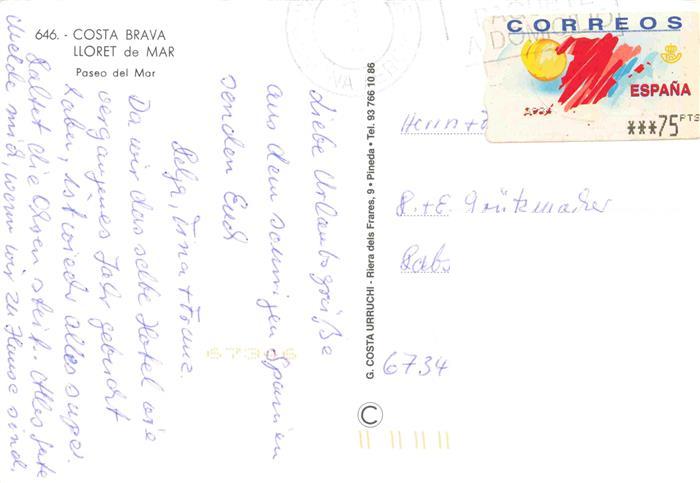 646. - COSTA BRAVA
LLORET de MAR
Paseo del Mar
Liebe Urlaubsgrüße
aus dem sonnigen Spanien
senden Euch
Helga, Tina + Franz.
Da wir das selbe Hotel wie
vergangenes Jahr gebucht
haben, ist wieder alles super.
Haltet die Ohren steif. Alles Gute
Melde mich, wenn wir zu Hause sind.
G. COSTA URRUCHI • Riera dels Frares, 9 • Pineda • Tel. 93 766 10 86
C
CORREOS
ESPAÑA
***75 PTS
A DOMICILI
Herrn +
R. + E. Grützmacher
6734
67346